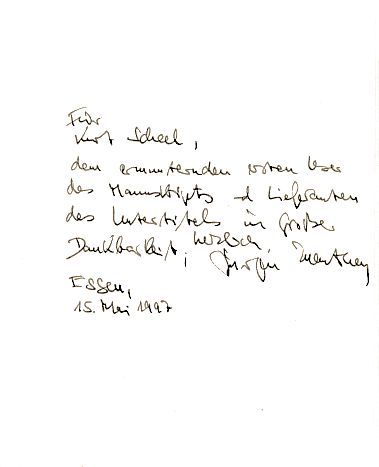 Für
Kurt Scheel,
dem ermunternden ersten Leser
des Manuskripts und Lieferanten
des Untertitels in großer
Dankbarkeit, herzlich,
Jürgen Manthey
Essen,
15. Mai 1997